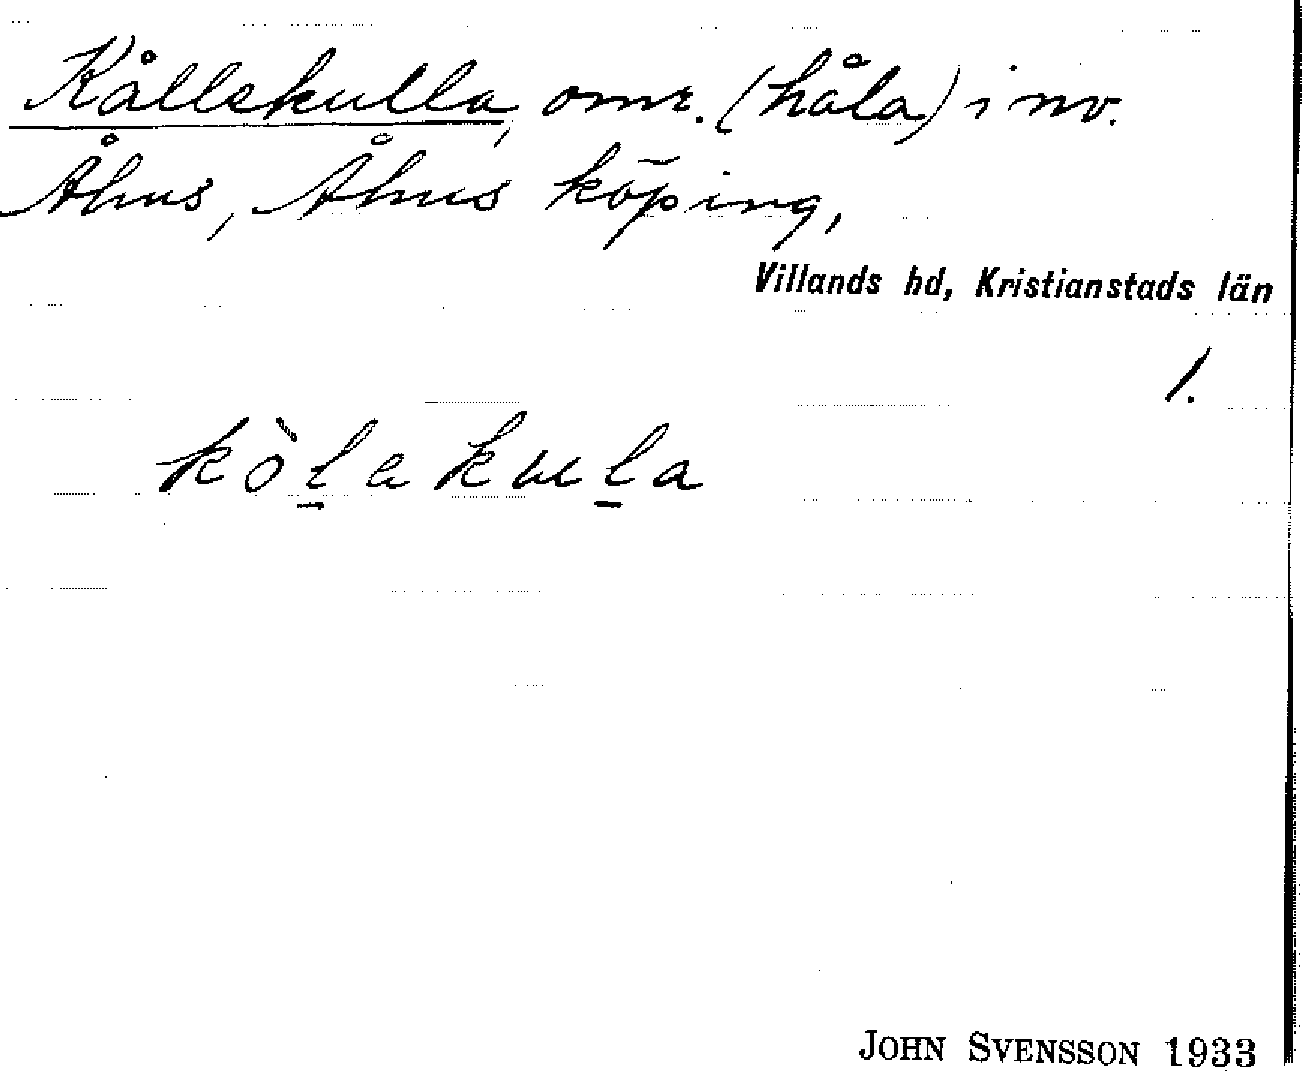 Kållekulla, omr. (håla) i nv.
Åhus, Åhus köping,
Villands hd, Kristianstads län
1.
kòl̲akul̲a
JOHN SVENSSON 1933